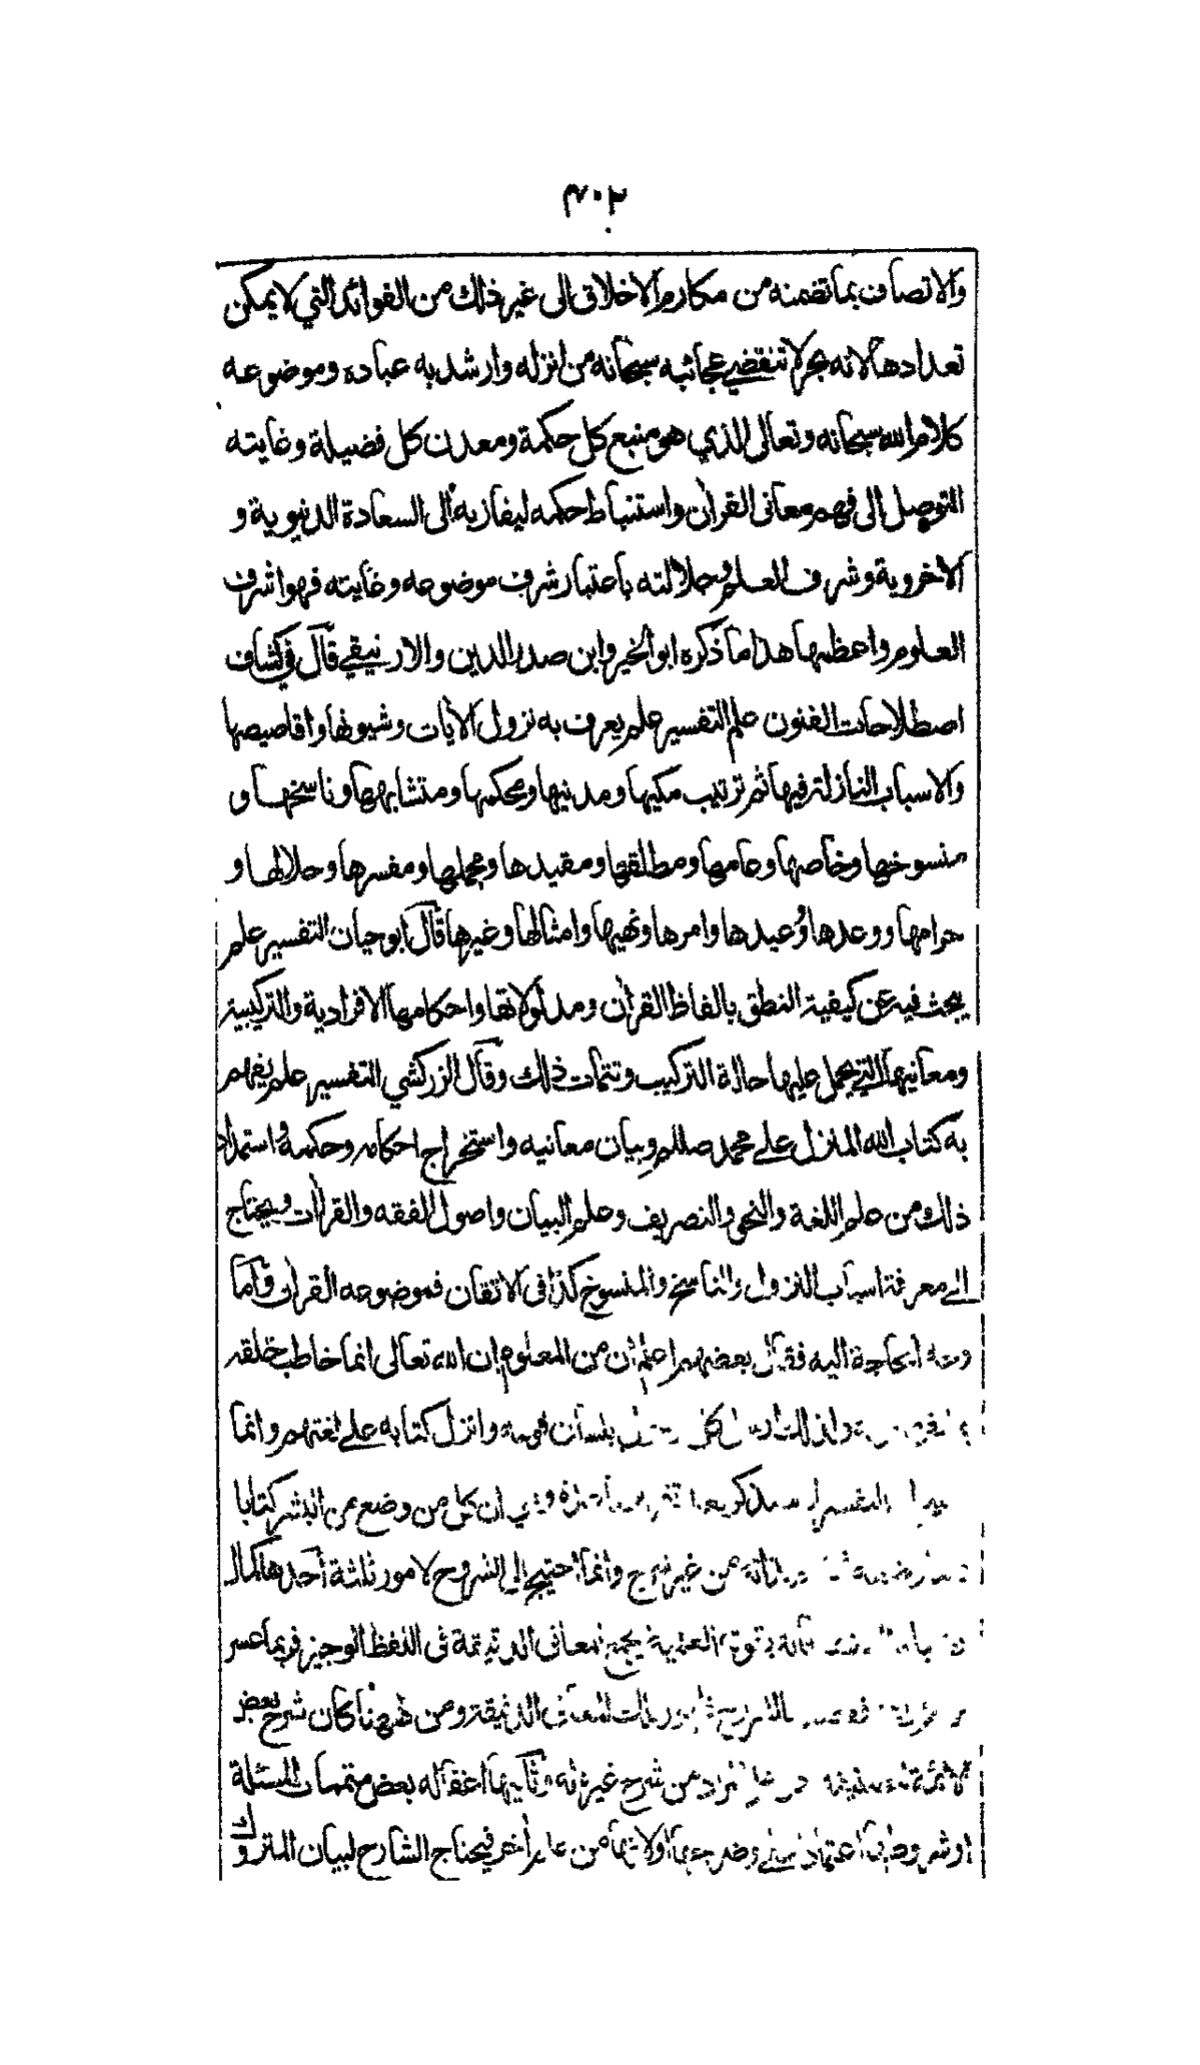 ٣٠٢
والاتصاف بما تضمنه من مكارم الاخلاق الى غير ذلك من الفوائد التي لا يمكن
تعدادها لانه بحر لا تنقضي عجائبه سبحانه من انزله وارشد به عباده وموضوعه
كلام الله سبحانه وتعالى الذي هو منبع كل حكمة ومعدن كل فضيلة وغايته
التوصل الى فهم معاني القرأن واستنباط حكمه ليفاز به الى السعادة الدنيوية و
الاخروية وشرف العلم وجلالته باعتبار شرف موضوعه وغايته فهو اشرف
العلوم واعظمها هذا ما ذكره ابو الخير وابن صدر الدين والارنيقي قال في كشاف
اصطلاحات الفنون علم التفسير علم يعرف به نزول الأيات وشيونها واقاصيصها
والاسباب النازلة فيها ثم ترتيب مكيها ومدنيها ومحكمها ومتشابهها وناسخها و
منسوخها وخاصها وعامها ومطلقها ومقيدها ومجملها ومفسرها وحلالها و
حرامها ووعدها ووعيدها وامرها ونهيها وامثالها وغيرها قال ابو حيان التفسير علم
يبحث فيه عن كيفية النطق بالفاظ القرأن ومدلولاتها واحكامها الافرادية والتركيبية
ومعانيها التي يحمل عليها حالة التركيب وتتمات ذلك وقال الزركشي التفسير علم يفهم
به كتاب الله المنزل على محمد صللم وبيان معانيه واستخراج احكامه وحكمه واستمداد
ذلك من علم اللغة والنحو والتصريف وعلم البيان واصول الفقه والقرأت ويحتاج
الى معرفة اسباب النزول والناسخ والمنسوخ كذا في الاتقان فموضوعه القرأن وأما
وجه الحاجة اليه فقال بعضهم اعلم ان من المعلوم ان الله تعالى انما خاطب خلقه
بلسان قومه وانزل كتابه على لغتهم وانما
التفسير ان كل من وضع من البشر كتابا
من غير شرح وانما احتيج الى الشروح لامور ثلثة أحدها كمال
العلمية يجمع المعاني الدقيقة في اللفظ الوجيز فربما عسر
المعاني الدقيقة ومن ههنا كان شرح بعض
الائمة من شرح غيره له وثانيها اغفاله بعض متممات المسئلة
او شروطها اعتمادا على وضوحها او لانها من علم أخر فيحتاج الشارح لبيان المتروك